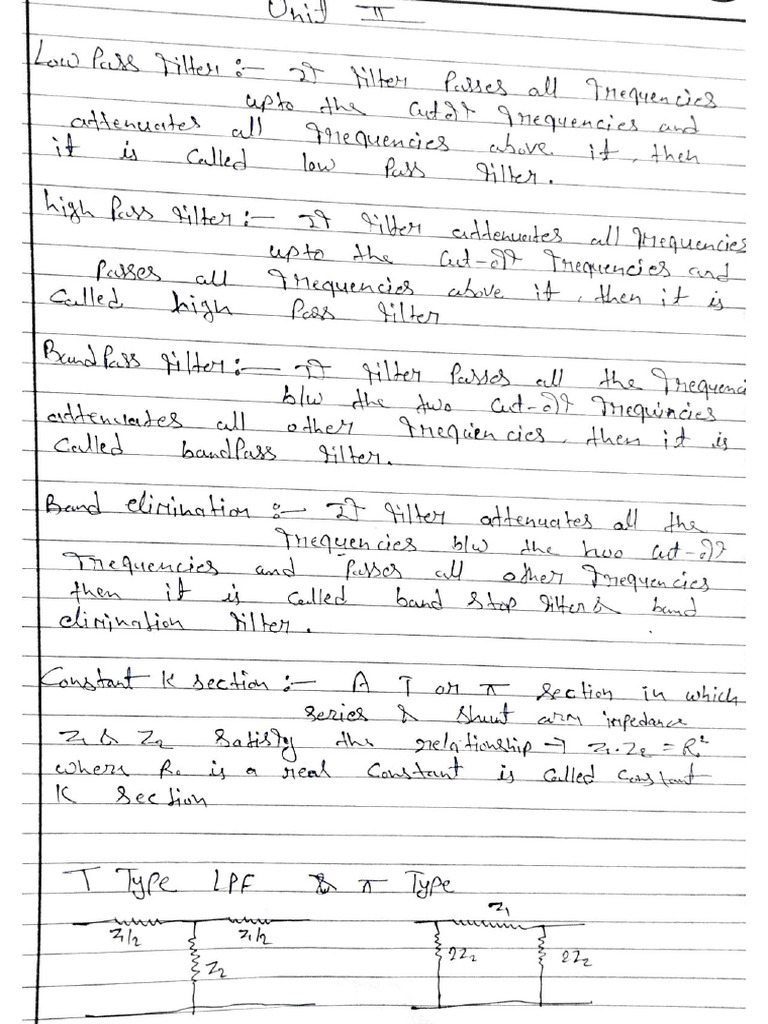 Unit II
Low Pass filter :- If filter Passes all frequencies
upto the cutoff frequencies and
attenuates all frequencies above it, then
it is called low Pass filter.
high Pass filter :- If filter attenuates all frequencies
upto the cut-off frequencies and
Passes all frequencies above it, then it is
called high Pass filter
BandPass filter :- If filter Passes all the frequenci
b/w the two cut-off frequincies
attenuates all other frequencies, then it is
called bandPass filter.
Band elimination :- If filter attenuates all the
frequencies b/w the two cut-off
frequencies and Passes all other frequencies
then it is called band stop filter & band
elimination filter.
Constant K section :- A T or π section in which
series & shunt arm impedance
Z1 & Z2 satisfy the relationship → Z1.Z2 = R²
where R. is a real constant is called constant
K section
T Type LPF & π Type
Z1/2 Z1/2 Z2
Z1 2Z2 2Z2